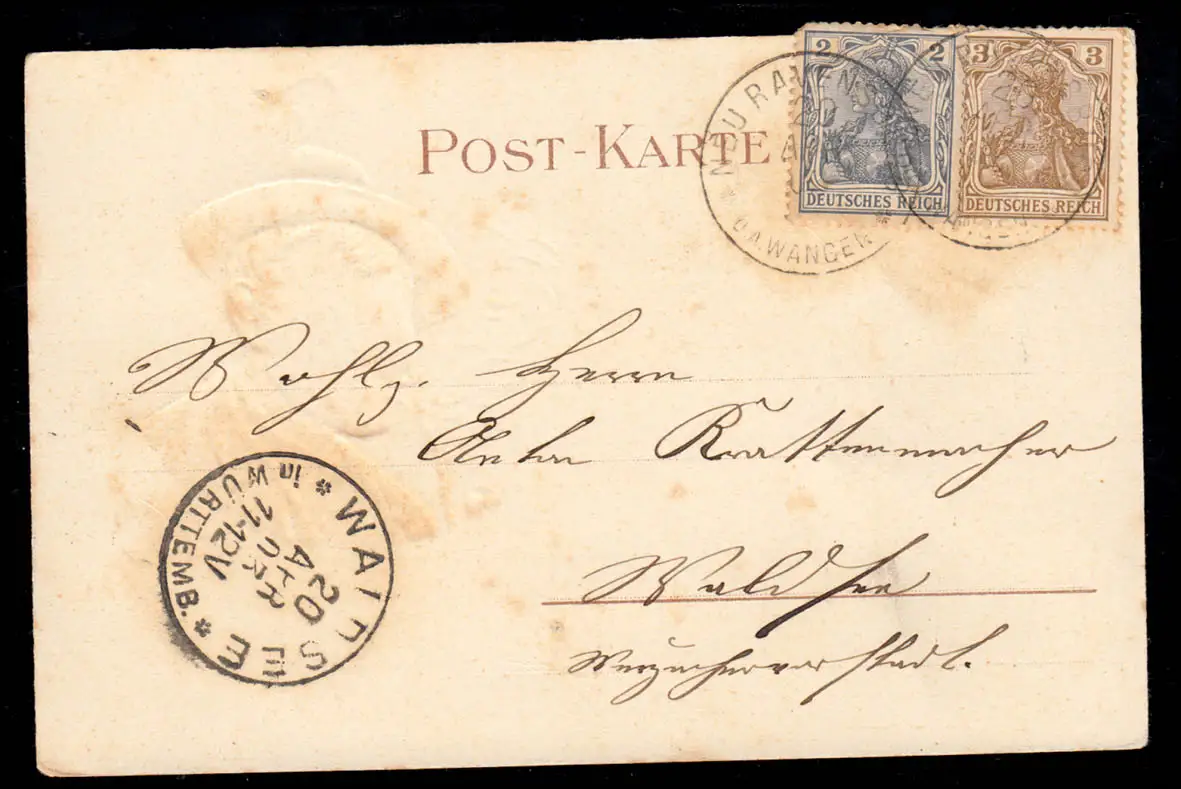 2 2
DEUTSCHES REICH
3 3
DEUTSCHES REICH
POST-KARTE
NEURAVENSBURG
20
* O.A. WANGEN *
Wohlg. Herrn
Anton Krattenmacher
Waldsee
Wurzachervorstadt.
WALDSEE
20 APR
11-12V
* in WÜRTTEMB. *